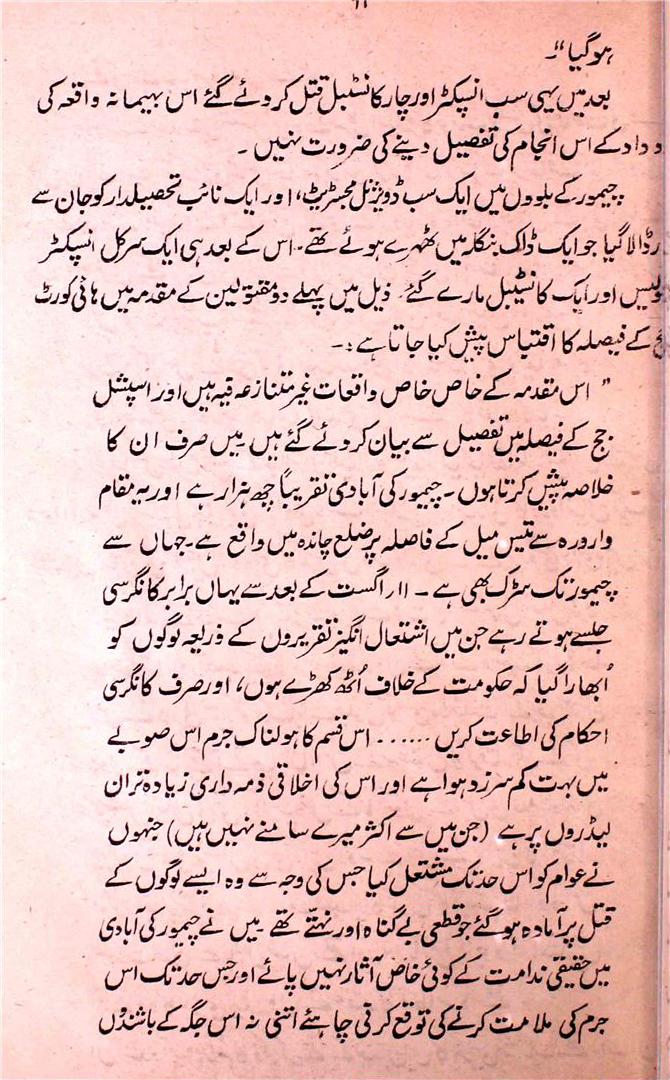 ۱۱
ہو گیا"۔
بعد میں یہی سب انسپکٹر اور چار کانسٹبل قتل کر دئے گئے اس بہیمانہ واقعہ کی
وداد کے اس انجام کی تفصیل دینے کی ضرورت نہیں ۔
چیمور کے بلووں میں ایک سب ڈویژنل مجسٹریٹ، اور ایک نائب تحصیلدار کو جان سے
رڈالا گیا جو ایک ڈاک بنگلہ میں ٹھہرے ہوئے تھے۔ اس کے بعد ہی ایک سرکل انسپکٹر
ولیس اور ایک کانٹیبل مارے گئے ذیل میں پہلے دو مقتولین کے مقدمہ میں ہائی کورٹ
ج کے فیصلہ کا اقتباس پیش کیا جاتا ہے :۔
" اس مقدمہ کے خاص خاص واقعات غیر متنازعہ فیہ ہیں اور اسپشل
جج کے فیصلہ میں تفصیل سے بیان کر دئے گئے ہیں میں صرف ان کا
خلاصہ پیش کرتا ہوں ۔ چیمور کی آبادی تقریباً چھ ہزار ہے اور یہ مقام
وارورہ سے تیس میل کے فاصلہ پر ضلع چاندہ میں واقع ہے۔ جہاں سے
چیمور تک سڑک بھی ہے ۔ ۱۱ر اگست کے بعد سے یہاں برابر کانگرسی
جلسے ہوتے رہے جن میں اشتعال انگیز تقریروں کے ذریعہ لوگوں کو
اُبھارا گیا کہ حکومت کے خلاف اُٹھ کھڑے ہوں، اور صرف کانگرسی
احکام کی اطاعت کریں ...... اس قسم کا ہولناک جرم اس صوبے
میں بہت کم سرزد ہوا ہے اور اس کی اخلاقی ذمہ داری زیادہ تر ان
لیڈروں پر ہے (جن میں سے اکثر میرے سامنے نہیں ہیں) جنہوں
نے عوام کو اس حد تک مشتعل کیا جس کی وجہ سے وہ ایسے لوگوں کے
قتل پر آمادہ ہو گئے جو قطعی بے گناہ اور نہتے تھے میں نے چیمور کی آبادی
میں حقیقی ندامت کے کوئی خاص آثار نہیں پائے اور جس حد تک اس
جرم کی ملامت کرنے کی توقع کرنی چاہئے اتنی نہ اس جگہ کے باشندوں